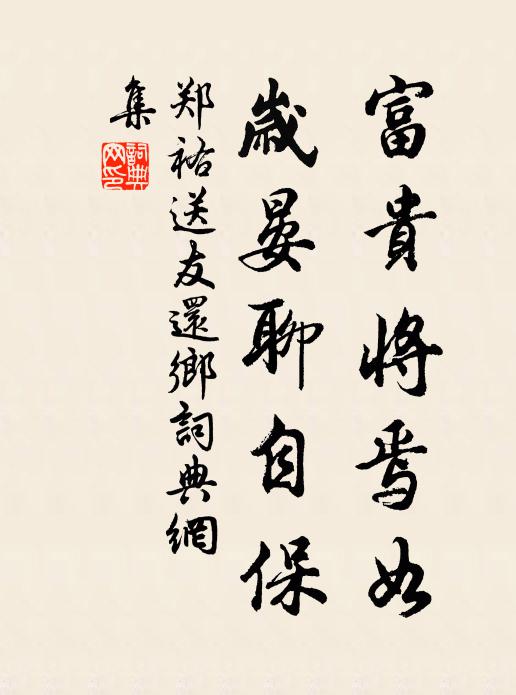 富貴將焉如
歲晏聊自保
郑祐送友還鄉詞典網
集
詞典網印